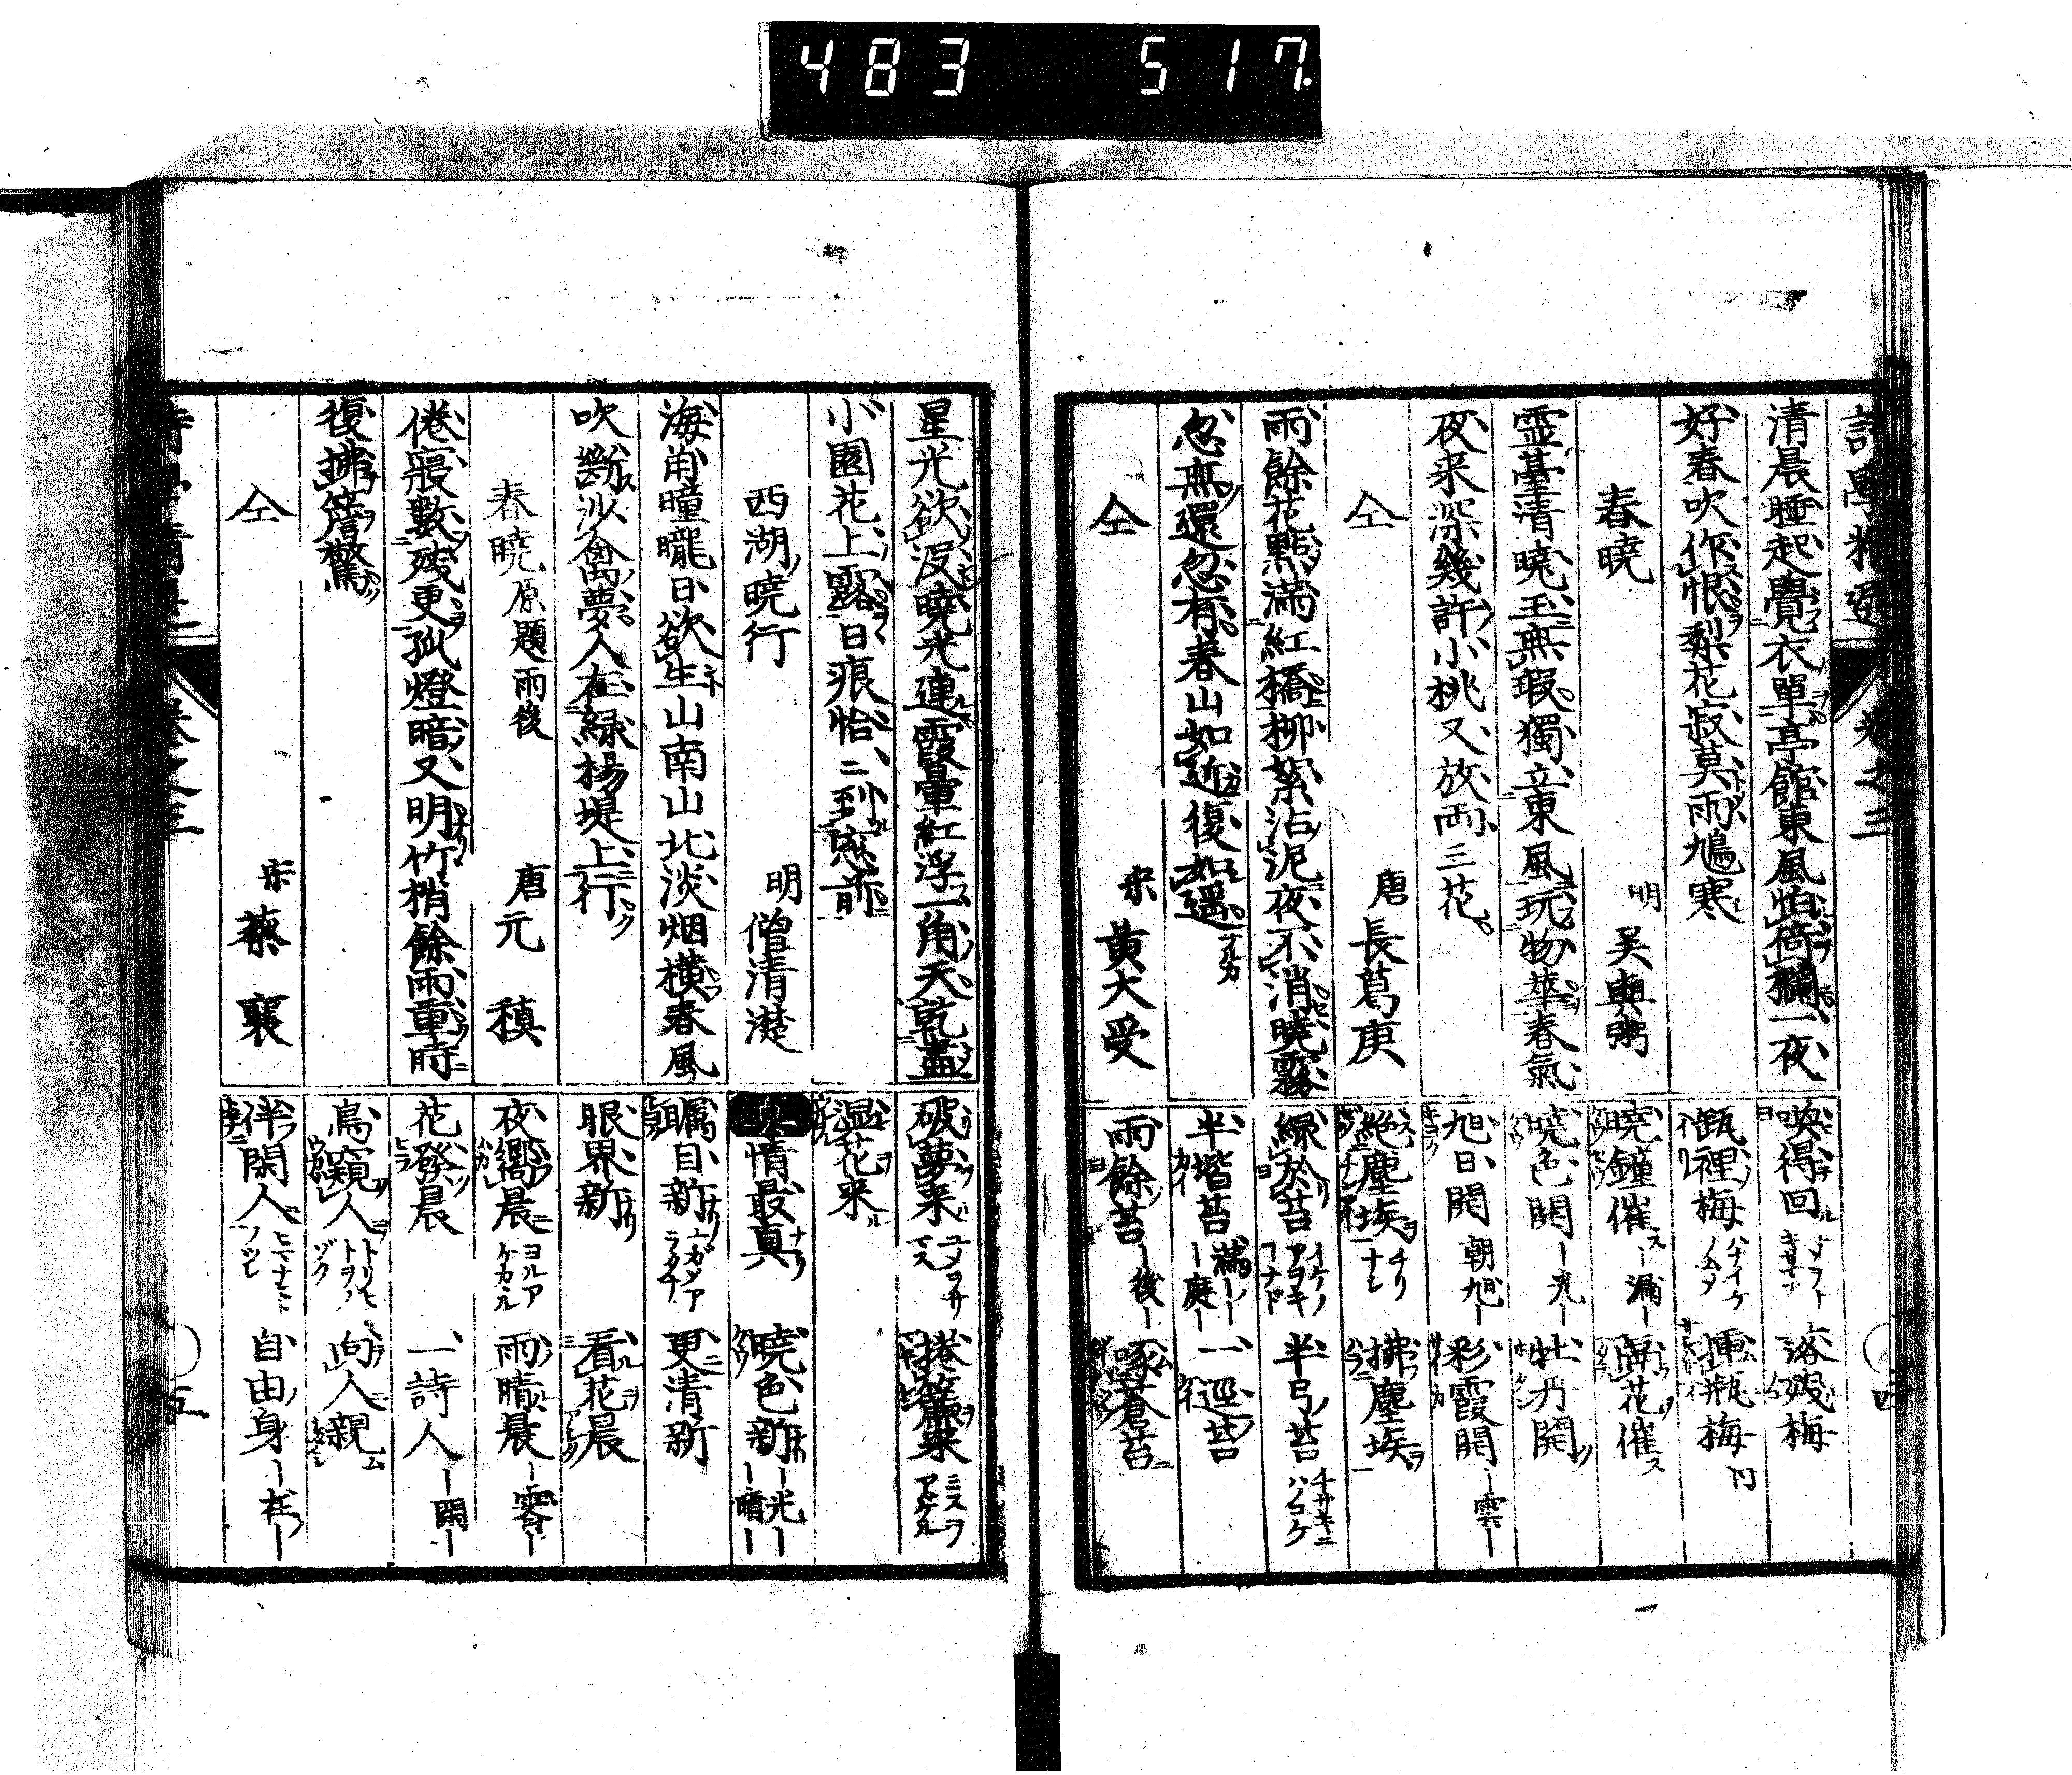 483 517
卷之三
清晨睡起覺衣單亭館東風怕倚欄一夜
好春吹作恨梨花寂莫雨鳩寒
春曉 明 吴興弼
霊臺清曉玉無瑕獨立東風玩物華春氣
夜来深幾許小桃又放両三花
仝 唐 長葛庚
雨餘花點滿紅橋柳絮沾泥夜不消曉霧
忽無還忽有春山如近復如遥
仝 宋 黄大受
喚得回 落残梅
瓶裡梅 挿瓶梅
曉鐘催 ー漏ー 催
曉色開 ー光ー 牡丹開
旭日開 朝旭ー 彩霞開 ー雲ー
絶塵埃 拂塵埃
緑於苔 半弓苔
半堦苔 滿ーー ー庭ー 一逕苔
雨餘苔 ー後ー 啄蒼苔
星光欲没曉光連霞暈紅浮一角天乾盡
小園花上露日痕恰二到窓前
西湖曉行 明 僧清濋
海角曈曨日欲生山南山北淡烟横春風
吹斷沙禽夢人在緑楊堤上行
春曉 原題雨後 唐 元稹
倦寢數残更孤燈暗又明竹梢餘雨重時
復拂簷驚
仝 宋 蔡襄
卷之三
破夢来 捲簾来
湿花来
情最真 曉色新 ー光ー ー晴ー
矚目新 更清新
眼界新 看花晨
夜嚮晨 雨晴晨
花發晨 一詩人 ー閑ー
鳥窺人 向人親
伴閑人 自由身 ー在ー
五